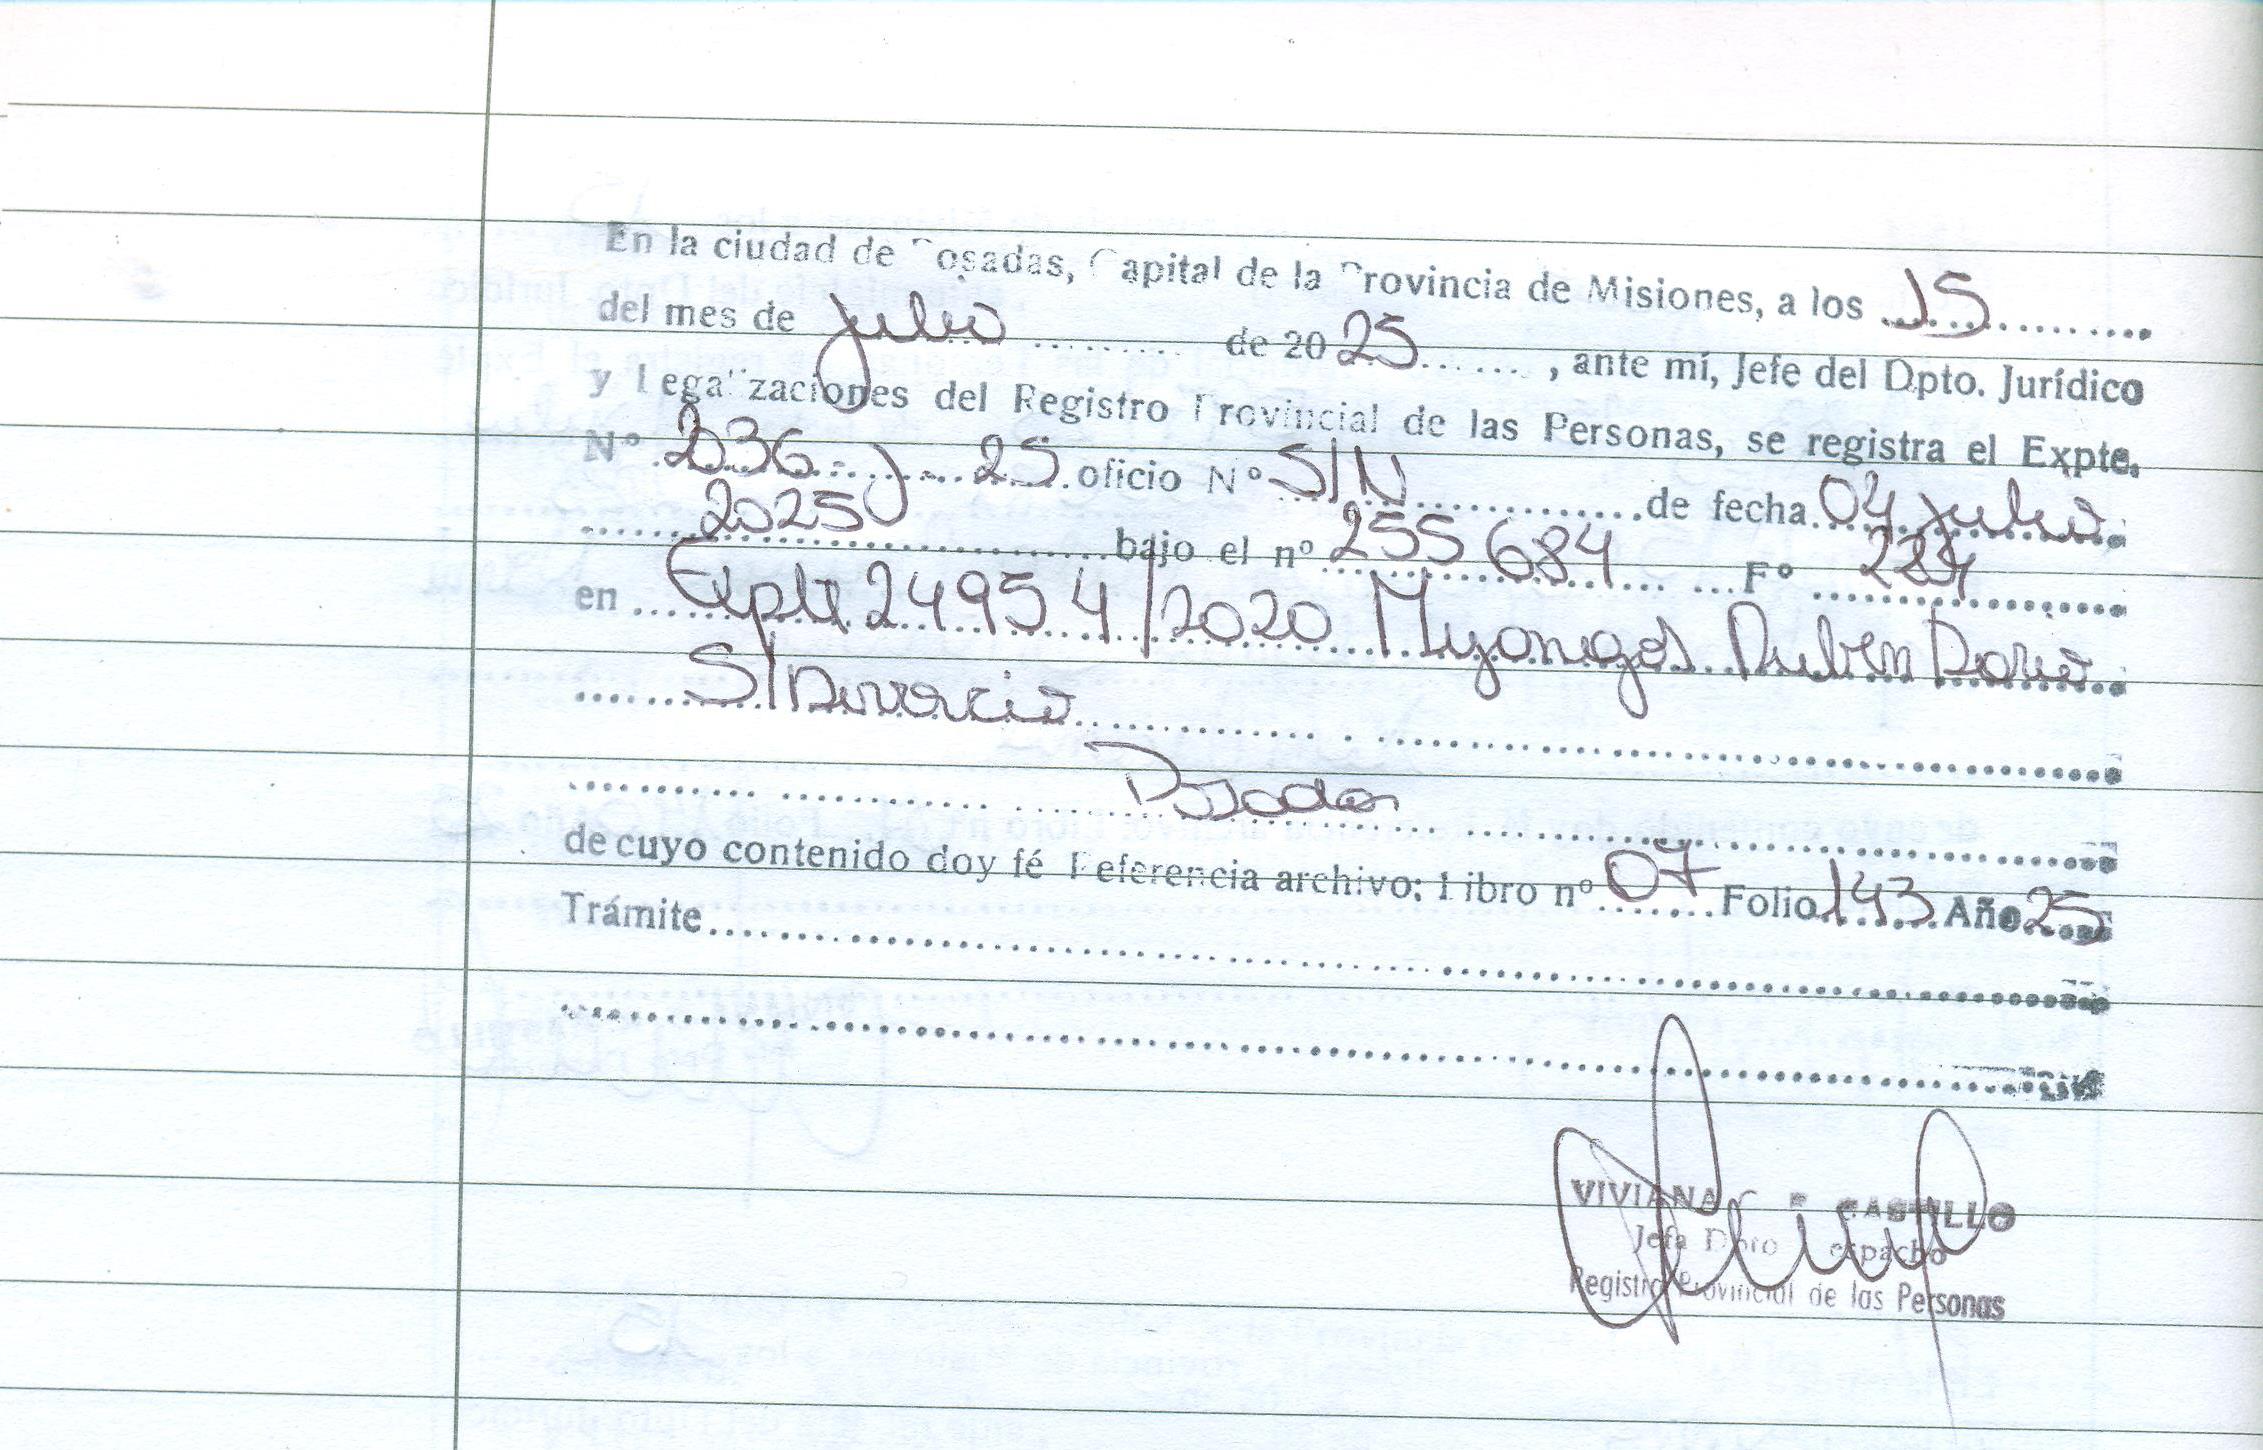 En la ciudad de Posadas, Capital de la Provincia de Misiones, a los 15
del mes de Julio de 2025, ante mí, Jefe del Dpto. Jurídico
y Legalizaciones del Registro Provincial de las Personas, se registra el Expte.
Nº 2036-J-25 oficio Nº S/N de fecha 04 Julio
2025 bajo el nº 255684 Fº 284
en Expte 24954/2020 Ruben Dario
S/Divorcio
Posadas
de cuyo contenido doy fé Referencia archivo: Libro nº 07 Folio 143 Año 25
Trámite
VIVIANA CASTILLO
Jefa Dpto Despacho
Registro Provincial de las Personas